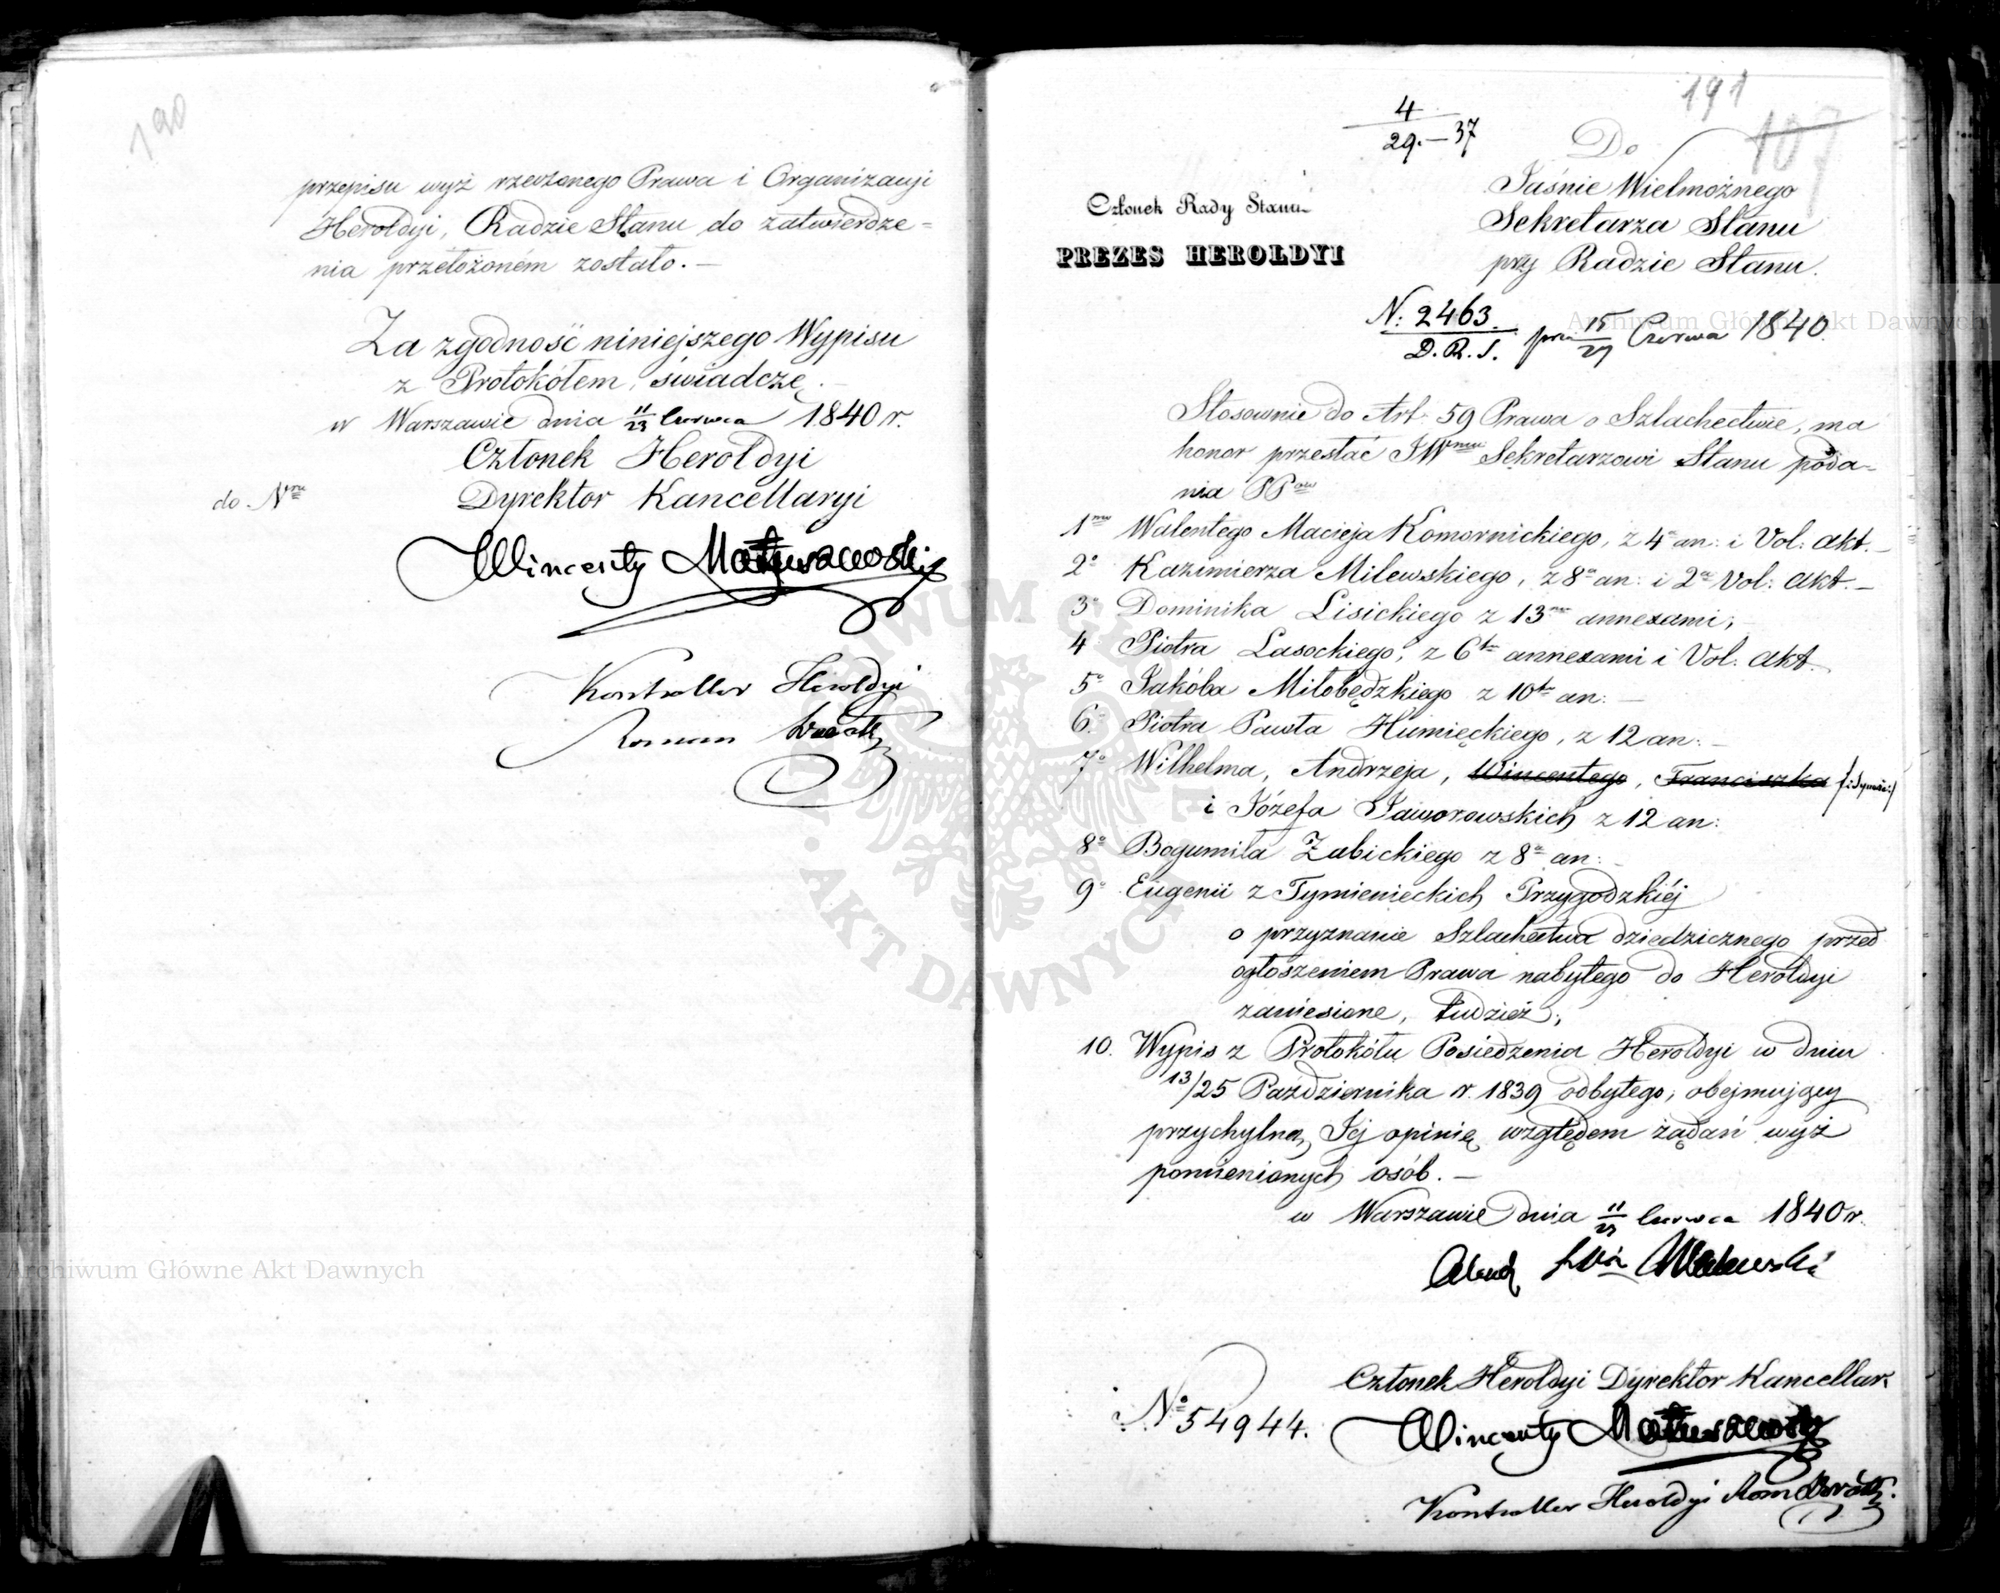 190
przepisu wyż rzeczonego Prawa i Organizacyi
Heroldyi, Radzie Stanu do zatwierdze=
nia przełożonem zostało. —
Za zgodność niniejszego Wypisu
z Protokółem, świadczę. —
w Warszawie dnia 11/23 Czerwca 1840 r.
Członek Heroldyi
do Nru Dyrektor Kancellaryi
Wincenty Matuszewski
Kontroller Heroldyi
Roman
191
107
4
29.—37
Do
Jaśnie Wielmożnego
Sekretarza Stanu
przy Radzie Stanu.
Członek Rady Stanu
PREZES HEROLDYI
N: 2463.
D. R. S. 15/27 Czerwca 1840.
Stosownie do Art. 59 Prawa o Szlachectwie, ma
honor przesłać JWmu Sekretarzowi Stanu poda=
nia PPow
1mo Walentego Macieja Komornickiego, z 4a an: i Vol: akt. —
2o Kazimierza Milewskiego, z 8a an: i 2a Vol: akt. —
3o Dominika Lisickiego z 13ma annexami, —
4 Piotra Lasockiego, z 6ta annexami i Vol: akt.
5o Jakóba Miłobędzkiego z 10ta an: —
6o Piotra Pawła Humięckiego, z 12 an: —
7o Wilhelma, Andrzeja, Wincentego, Franciszka
i Józefa Jaworowskich z 12 an:
8o Bogumiła Zabickiego z 8a an: —
9o Eugenii z Tymienieckich Przygodzkiéj
o przyznanie Szlachectwa dziedzicznego przed
ogłoszeniem Prawa nabytego do Heroldyi
zaniesione, tudzież,
10. Wypis z Protokółu Posiedzenia Heroldyi w dniu
13/25 Października r. 1839 odbytego, obejmujący
przychylną Jej opinię względem żądań wyż
pomienionych osób. —
w Warszawie dnia 11/23 Czerwca 1840 r.
Członek Heroldyi Dyrektor Kancellar
No 54944. Wincenty Matuszewski
Kontroller Heroldyi Rom
Archiwum Główne Akt Dawnych
Archiwum Główne Akt Dawnych
ARCHIWUM GŁÓWNE AKT DAWNYCH